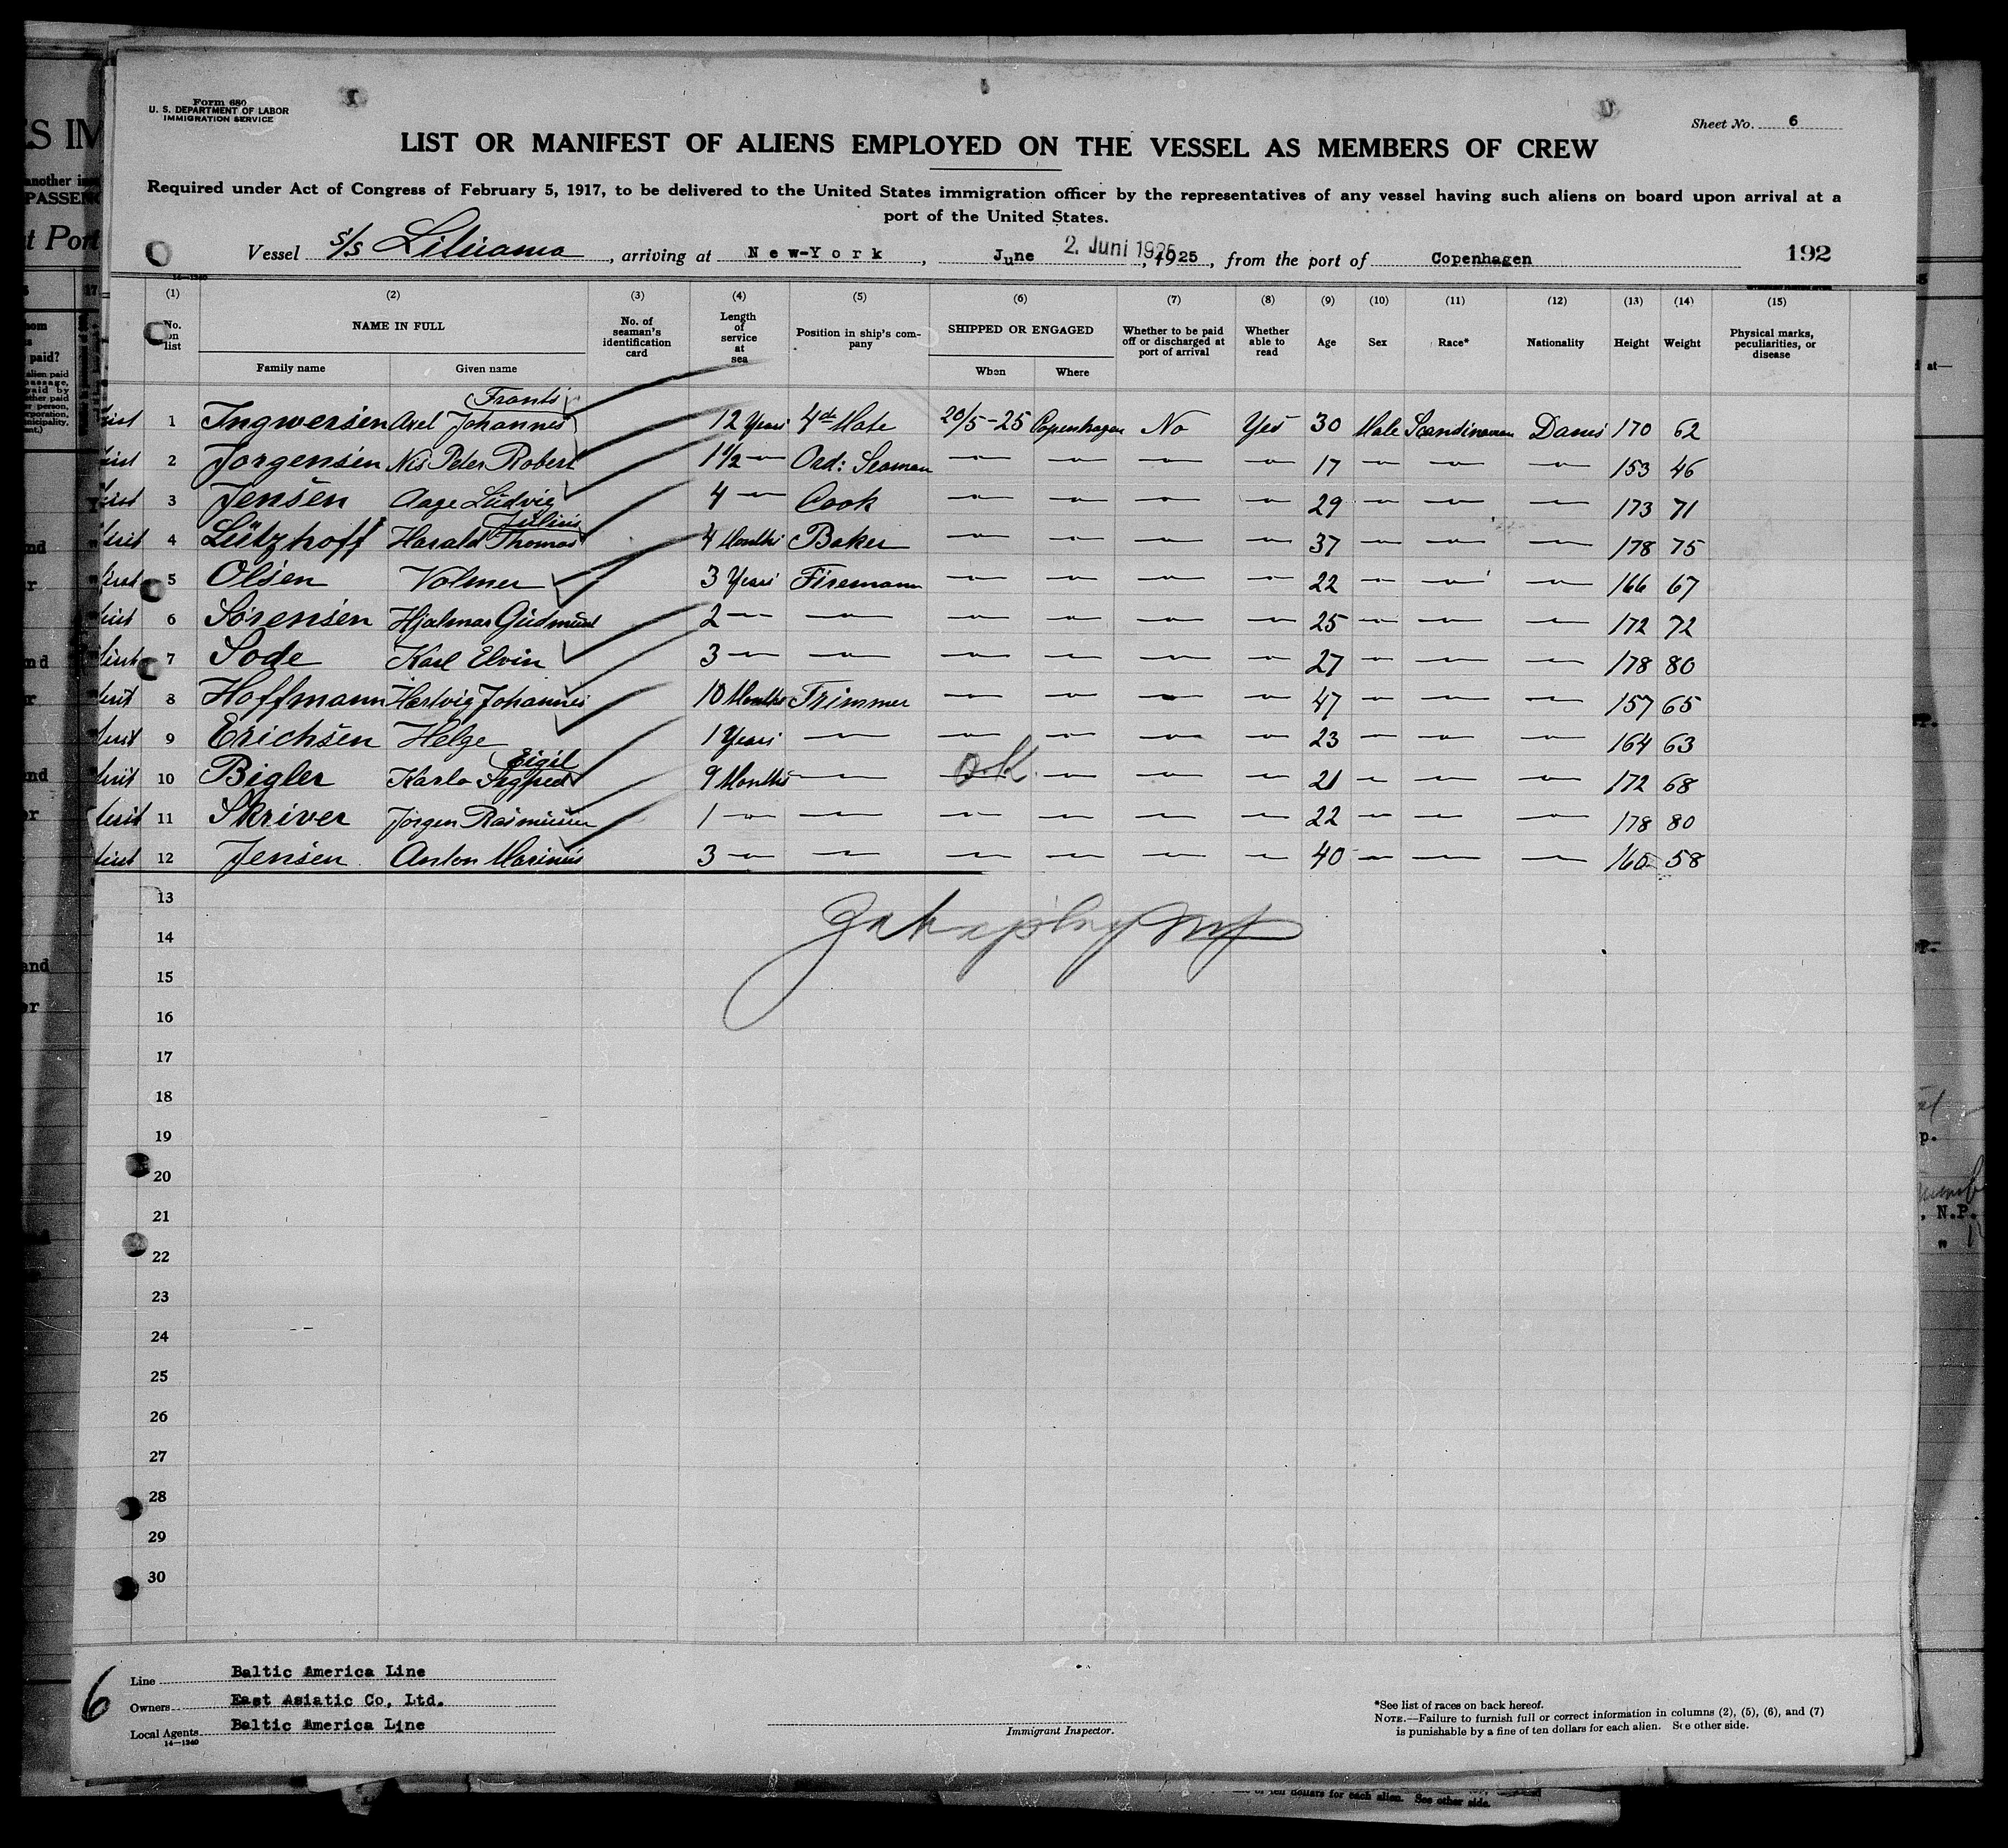 Form 680
U. S. DEPARTMENT OF LABOR
IMMIGRATION SERVICE
Sheet No. 6
LIST OR MANIFEST OF ALIENS EMPLOYED ON THE VESSEL AS MEMBERS OF CREW
Required under Act of Congress of February 5, 1917, to be delivered to the United States immigration officer by the representatives of any vessel having such aliens on board upon arrival at a
port of the United States.
Vessel s/s Lituania, arriving at New-York, June 2. Juni 1925, 1925, from the port of Copenhagen 192
(1) (2) (3) (4) (5) (6) (7) (8) (9) (10) (11) (12) (13) (14) (15)
No. on list NAME IN FULL No. of seaman's identification card Length of service at sea Position in ship's company SHIPPED OR ENGAGED Whether to be paid off or discharged at port of arrival Whether able to read Age Sex Race* Nationality Height Weight Physical marks, peculiarities, or disease
Family name Given name When Where
Frants
1 Ingwersen Axel Johannes 12 Years 4de Mate 20/5-25 Copenhagen No Yes 30 Male Scandinavian Danis 170 62
2 Jorgensen Nis Peter Robert 1 1/2 — Ord: Seaman — — — — 17 — — — 153 46
3 Jensen Aage Ludvig 4 — Cook — — — — 29 — — — 173 71
Julius
4 Lützhoff Harald Thomas 4 Months Baker — — — — 37 — — — 178 75
5 Olsen Volmer 3 Years Firemann — — — — 22 — — — 166 67
6 Sørensen Hjalmar Gudmund 2 — — — — — — 25 — — — 172 72
7 Sode Karl Elvin 3 — — — — — — 27 — — — 178 80
8 Hoffmann Hartvig Johannes 10 Months Trimmer — — — — 47 — — — 157 65
9 Erichsen Helge 1 Years — — — — — 23 — — — 164 63
Eigil
10 Bigler Karlo Segfred 9 Months — O.K. — — — 21 — — — 172 68
11 Skriver Jorgen Rasmussen 1 — — — — — — 22 — — — 178 80
12 Jensen Anton Marinus 3 — — — — — — 40 — — — 165 58
13
14
15
16
17
18
19
20
21
22
23
24
25
26
27
28
29
30
6
Line Baltic America Line
Owners East Asiatic Co, Ltd.
Local Agents Baltic America Line
14—1240
Immigrant Inspector.
*See list of races on back hereof.
NOTE.—Failure to furnish full or correct information in columns (2), (5), (6), and (7)
is punishable by a fine of ten dollars for each alien. See other side.